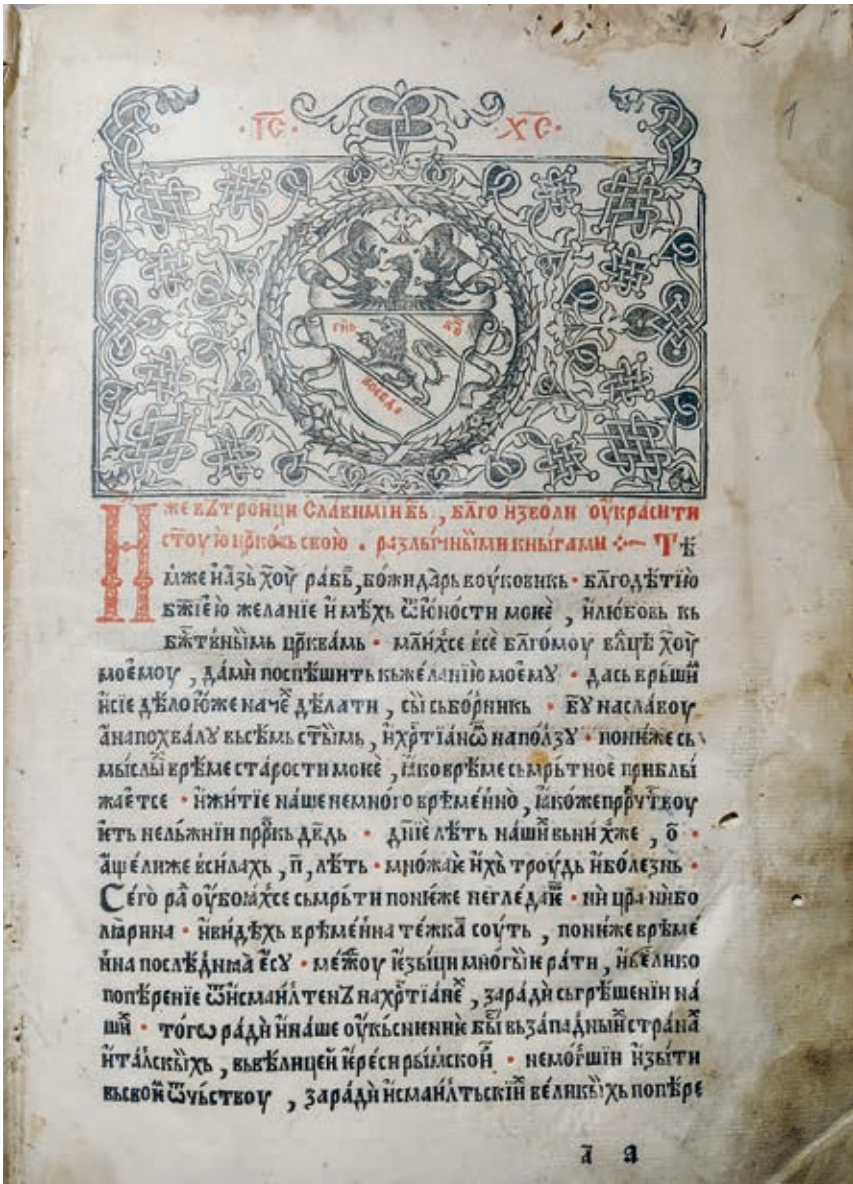 ·І҃С· ·Х҃С·
1
гнь
воевда
Иже въ тронци славимїи бь҃ , бл҃го изволи оукрасити
ст҃оую цр҃ковь свою . разлычными кныгами ·:~ Тѣ
мже и азь хо҃у рабь , божидарь воуковикь · бл҃годѣтїю
бж҃їею желанїе имѣхь ѿ юности моѥ , и любовь кь
бж҃твнымь цр҃квамь · млихсе все бл҃гомоу влцѣ хо҃у
моемоу , да ми поспѣшить кь желанїю моемꙋ · да сьврьши
и сїе дѣло юже наче дѣлати , сьи сьборникь · бꙋ на славоу
а на похвалꙋ вьсѣмь ст҃ымь , и хрⷭтїанѡ на ползꙋ · понѥже сь
мысльı врѣме старости моѥ , ꙗко врѣме сьмрьтное приблы
жаетсе · и житїе наше немного врѣменно , ꙗкоже прⷪчⷭтвоу
ѥть нельжнїи прⷪркь дв҃дь · днїе лѣть наши вьних же , о҃ ·
аще ли же в силахь , п҃ , лѣть · множаѥ ихь троудь и болезнь ·
Сего ра оубоꙗхсе сьмрьти понѥже негледаѥ · ни цр҃а ни бо
лꙗрина · и видѣхь врѣмѣнна тежка соуть , понѥже врѣме
нна послѣднꙗа есꙋ · межоу ѥзыци многыѥ рати , и велико
попѣренїе ѿ исмаилтенъ на хрⷭтїане , заради сьгрѣшенїи на
ши · того ради и наше оукьсненїе бы вь западныи страна
италскыхь , вь велицеи ѥреси рымскои · немогши изыти
вьсвои ѿчьствоу , заради исмаилтьскїи великыхь попѣре
а҃ a